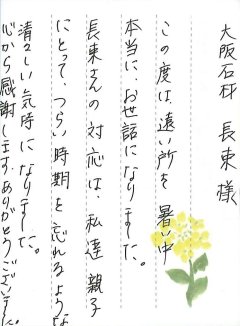 大阪石材 長東様
この度は、遠い所を暑い中
本当に、お世話になりました。
長東さんの対応は、私達親子
にとって、つらい時期を忘れるような
清々しい気時になりました。
心から感謝します。ありがとうございました。